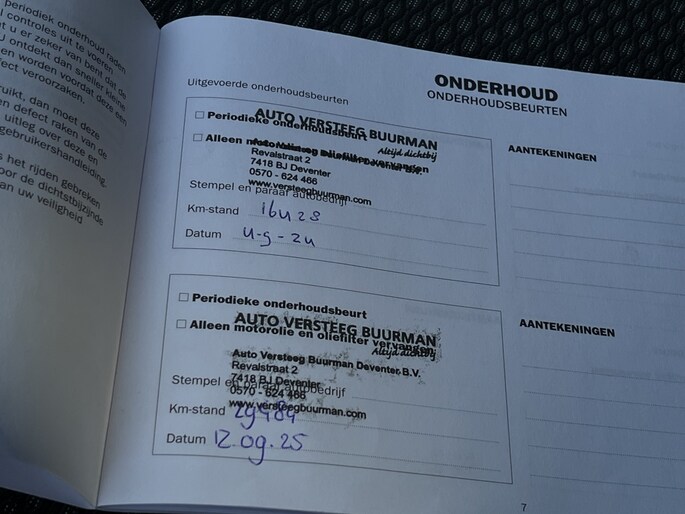 periodiek onderhoud raden
controles uit te voeren
u er zeker van bent dat de
U ontdekt dan sneller kleine
en worden voordat deze een
fect veroorzaken.
ruikt, dan moet deze
en defect raken van de
uitleg over deze en
gebruikershandleiding,
s het rijden gebreken
oor de dichtstbijzijnde
an uw veiligheid
ONDERHOUD
ONDERHOUDSBEURTEN
Uitgevoerde onderhoudsbeurten
☐ Periodieke onderhoudsbeurt
AUTO VERSTEEG BUURMAN
Altijd dichtbij
☐ Alleen motorolie en oliefilter vervangen
Auto Versteeg Buurman Deventer B.V.
Revalstraat 2
7418 BJ Deventer
0570 - 624 466
www.versteegbuurman.com
Stempel en paraaf autobedrijf
Km-stand 16428
Datum 4-9-24
AANTEKENINGEN
☐ Periodieke onderhoudsbeurt
AUTO VERSTEEG BUURMAN
Altijd dichtbij
☐ Alleen motorolie en oliefilter vervangen
Auto Versteeg Buurman Deventer B.V.
Revalstraat 2
7418 BJ Deventer
0570 - 624 466
www.versteegbuurman.com
Stempel en paraaf autobedrijf
Km-stand 29484
Datum 12.09.25
AANTEKENINGEN
7